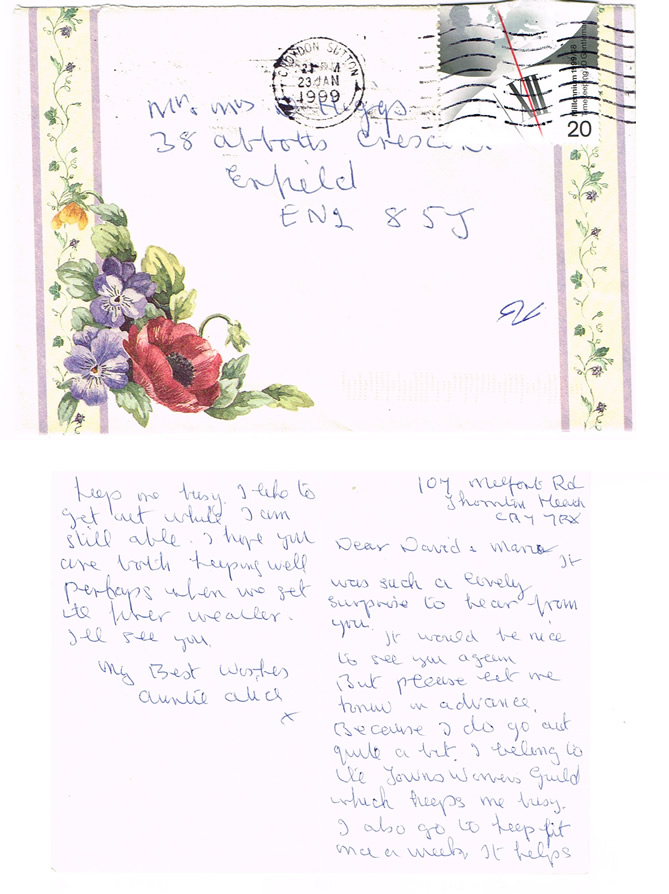 CROYDON SUTTON
23 JAN
1999
Millennium 1999/48
Timekeeping
20
Mr. Mrs Higgs
38 abbotts Crescent
Enfield
EN2 8 5J
107 Melfort Rd
Thornton Heath
CR7 7RX
Dear David & Marie It
was such a lovely
surprise to hear from
you.
It would be nice
to see you again
But please let me
know in advance.
Because I do go out
quite a bit. I belong to
the Towns Womens Guild
which keeps me busy.
I also go to keep fit
once a week. It helps
keep me busy. I like to
get out while I am
still able. I hope you
are both keeping well
perhaps when we get
the finer weather.
I'll see you.
My Best Wishes
auntie alice
x